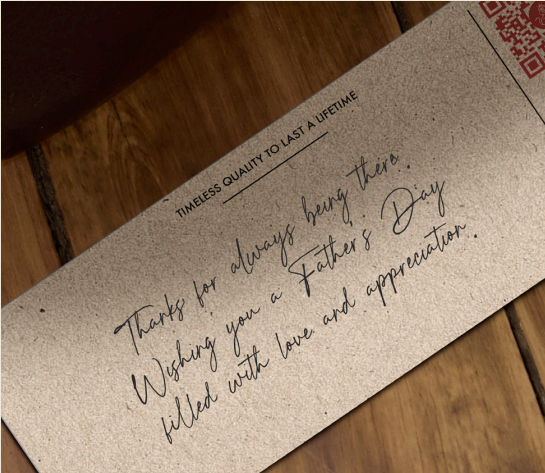 TIMELESS QUALITY TO LAST A LIFETIME
Thanks for always being there.
Wishing you a Father's Day
filled with love and appreciation.